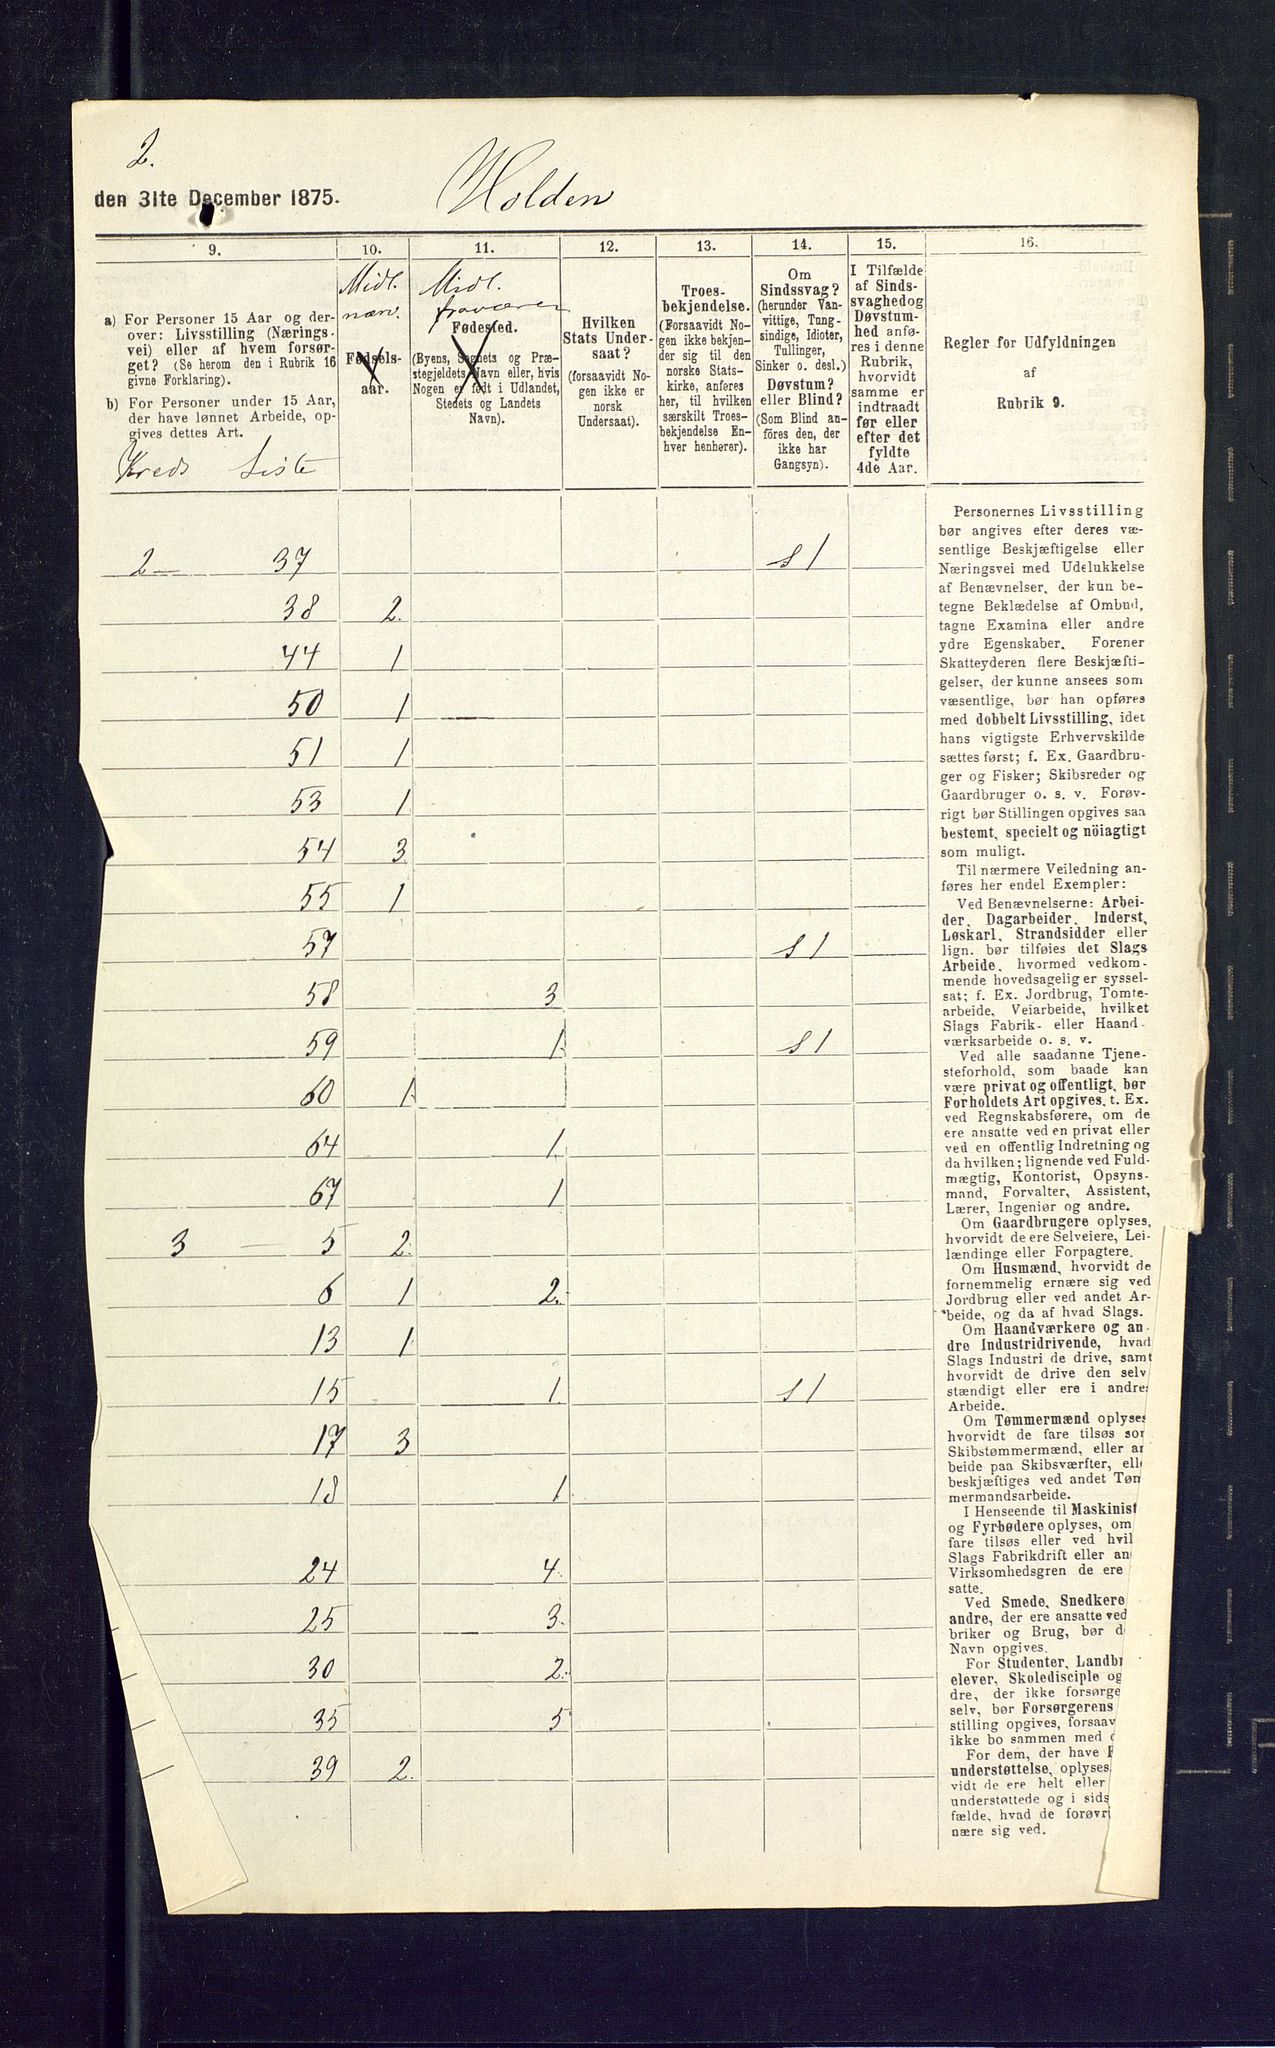 2.
den 31te December 1875. Holden
9. 10. 11. 12. 13. 14. 15. 16.
a) For Personer 15 Aar og der-
over: Livsstilling (Nærings-
vei) eller af hvem forsør-
get? (Se herom den i Rubrik 16
givne Forklaring).
b) For Personer under 15 Aar,
der have lønnet Arbeide, op-
gives dettes Art.
Kreds Liste
Midl.
nærv.
Fødsels-
aar.
Midl.
fraværen
Fødested.
(Byens, Sognets og Præ-
stegjeldets Navn eller, hvis
Nogen er født i Udlandet,
Stedets og Landets
Navn).
Hvilken
Stats Under-
saat?
(forsaavidt No-
gen ikke er
norsk
Undersaat).
Troes-
bekjendelse.
(Forsaavidt No-
gen ikke bekjen-
der sig til den
norske Stats-
kirke, anføres
her, til hvilken
særskilt Troes-
bekjendelse En-
hver henhører).
Om
Sindssvag?
(herunder Van-
vittige, Tung-
sindige, Idioter,
Tullinger,
Sinker o. desl.)
Døvstum?
eller Blind?
(Som Blind an-
føres den, der
ikke har
Gangsyn).
I Tilfælde
af Sinds-
svaghedog
Døvstum-
hed anfø-
res i denne
Rubrik,
hvorvidt
samme er
indtraadt
før eller
efter det
fyldte
4de Aar.
Regler for Udfyldningen
af
Rubrik 9.
2 — 37 S 1
38 2.
44 1
50 1
51 1
53 1
54 3
55 1
57 S 1
58 3
59 1 S 1
60 1
64 1
67 1
3 — 5 2.
6 1 2.
13 1
15 1 S 1
17 3
18 1
24 4
25 3
30 2.
35 5
39 2.
Personernes Livsstilling
bør angives efter deres væ-
sentlige Beskjæftigelse eller
Næringsvei med Udelukkelse
af Benævnelser, der kun be-
tegne Beklædelse af Ombud,
tagne Examina eller andre
ydre Egenskaber. Forener
Skatteyderen flere Beskjæfti-
gelser, der kunne ansees som
væsentlige, bør han opføres
med dobbelt Livsstilling, idet
hans vigtigste Erhvervskilde
sættes først; f. Ex. Gaardbru-
ger og Fisker; Skibsreder og
Gaardbruger o. s. v. Forøv-
rigt bør Stillingen opgives saa
bestemt, specielt og nöiagtigt
som muligt.
Til nærmere Veiledning an-
føres her endel Exempler:
Ved Benævnelserne: Arbei-
der, Dagarbeider, Inderst,
Løskarl, Strandsidder eller
lign. bør tilføies det Slags
Arbeide, hvormed vedkom-
mende hovedsagelig er syssel-
sat; f. Ex. Jordbrug, Tomte-
arbeide, Veiarbeide, hvilket
Slags Fabrik- eller Haand-
værksarbeide o. s. v.
Ved alle saadanne Tjene-
steforhold, som baade kan
være privat og offentligt, bør
Forholdets Art opgives, t. Ex.
ved Regnskabsførere, om de
ere ansatte ved en privat eller
ved en offentlig Indretning og
da hvilken; lignende ved Fuld-
mægtig, Kontorist, Opsyns-
mand, Forvalter, Assistent,
Lærer, Ingeniør og andre.
Om Gaardbrugere oplyses,
hvorvidt de ere Selveiere, Lei-
lændinge eller Forpagtere.
Om Husmænd, hvorvidt de
fornemmelig ernære sig ved
Jordbrug eller ved andet Ar-
beide, og da af hvad Slags.
Om Haandværkere og an-
dre Industridrivende, hvad
Slags Industri de drive, samt
hvorvidt de drive den selv-
stændigt eller ere i andres
Arbeide.
Om Tømmermænd oplyses
hvorvidt de fare tilsøs som
Skibstømmermænd, eller ar
beide paa Skibsværfter, elle
beskjæftiges ved andet Tøm
mermandsarbeide.
I Henseende til Maskinist
og Fyrbødere oplyses, om
fare tilsøs eller ved hvil
Slags Fabrikdrift eller an
Virksomhedsgren de ere
satte.
Ved Smede, Snedkere
andre, der ere ansatte ved
briker og Brug, bør d
Navn opgives.
For Studenter, Landbr
elever, Skoledisciple og
dre, der ikke forsørge
selv, bør Forsørgerens
stilling opgives, forsaav
ikke bo sammen med d
For dem, der have F
understøttelse, oplyses,
vidt de ere helt eller
understøttede og i sids
fælde, hvad de forøvri
nære sig ved.